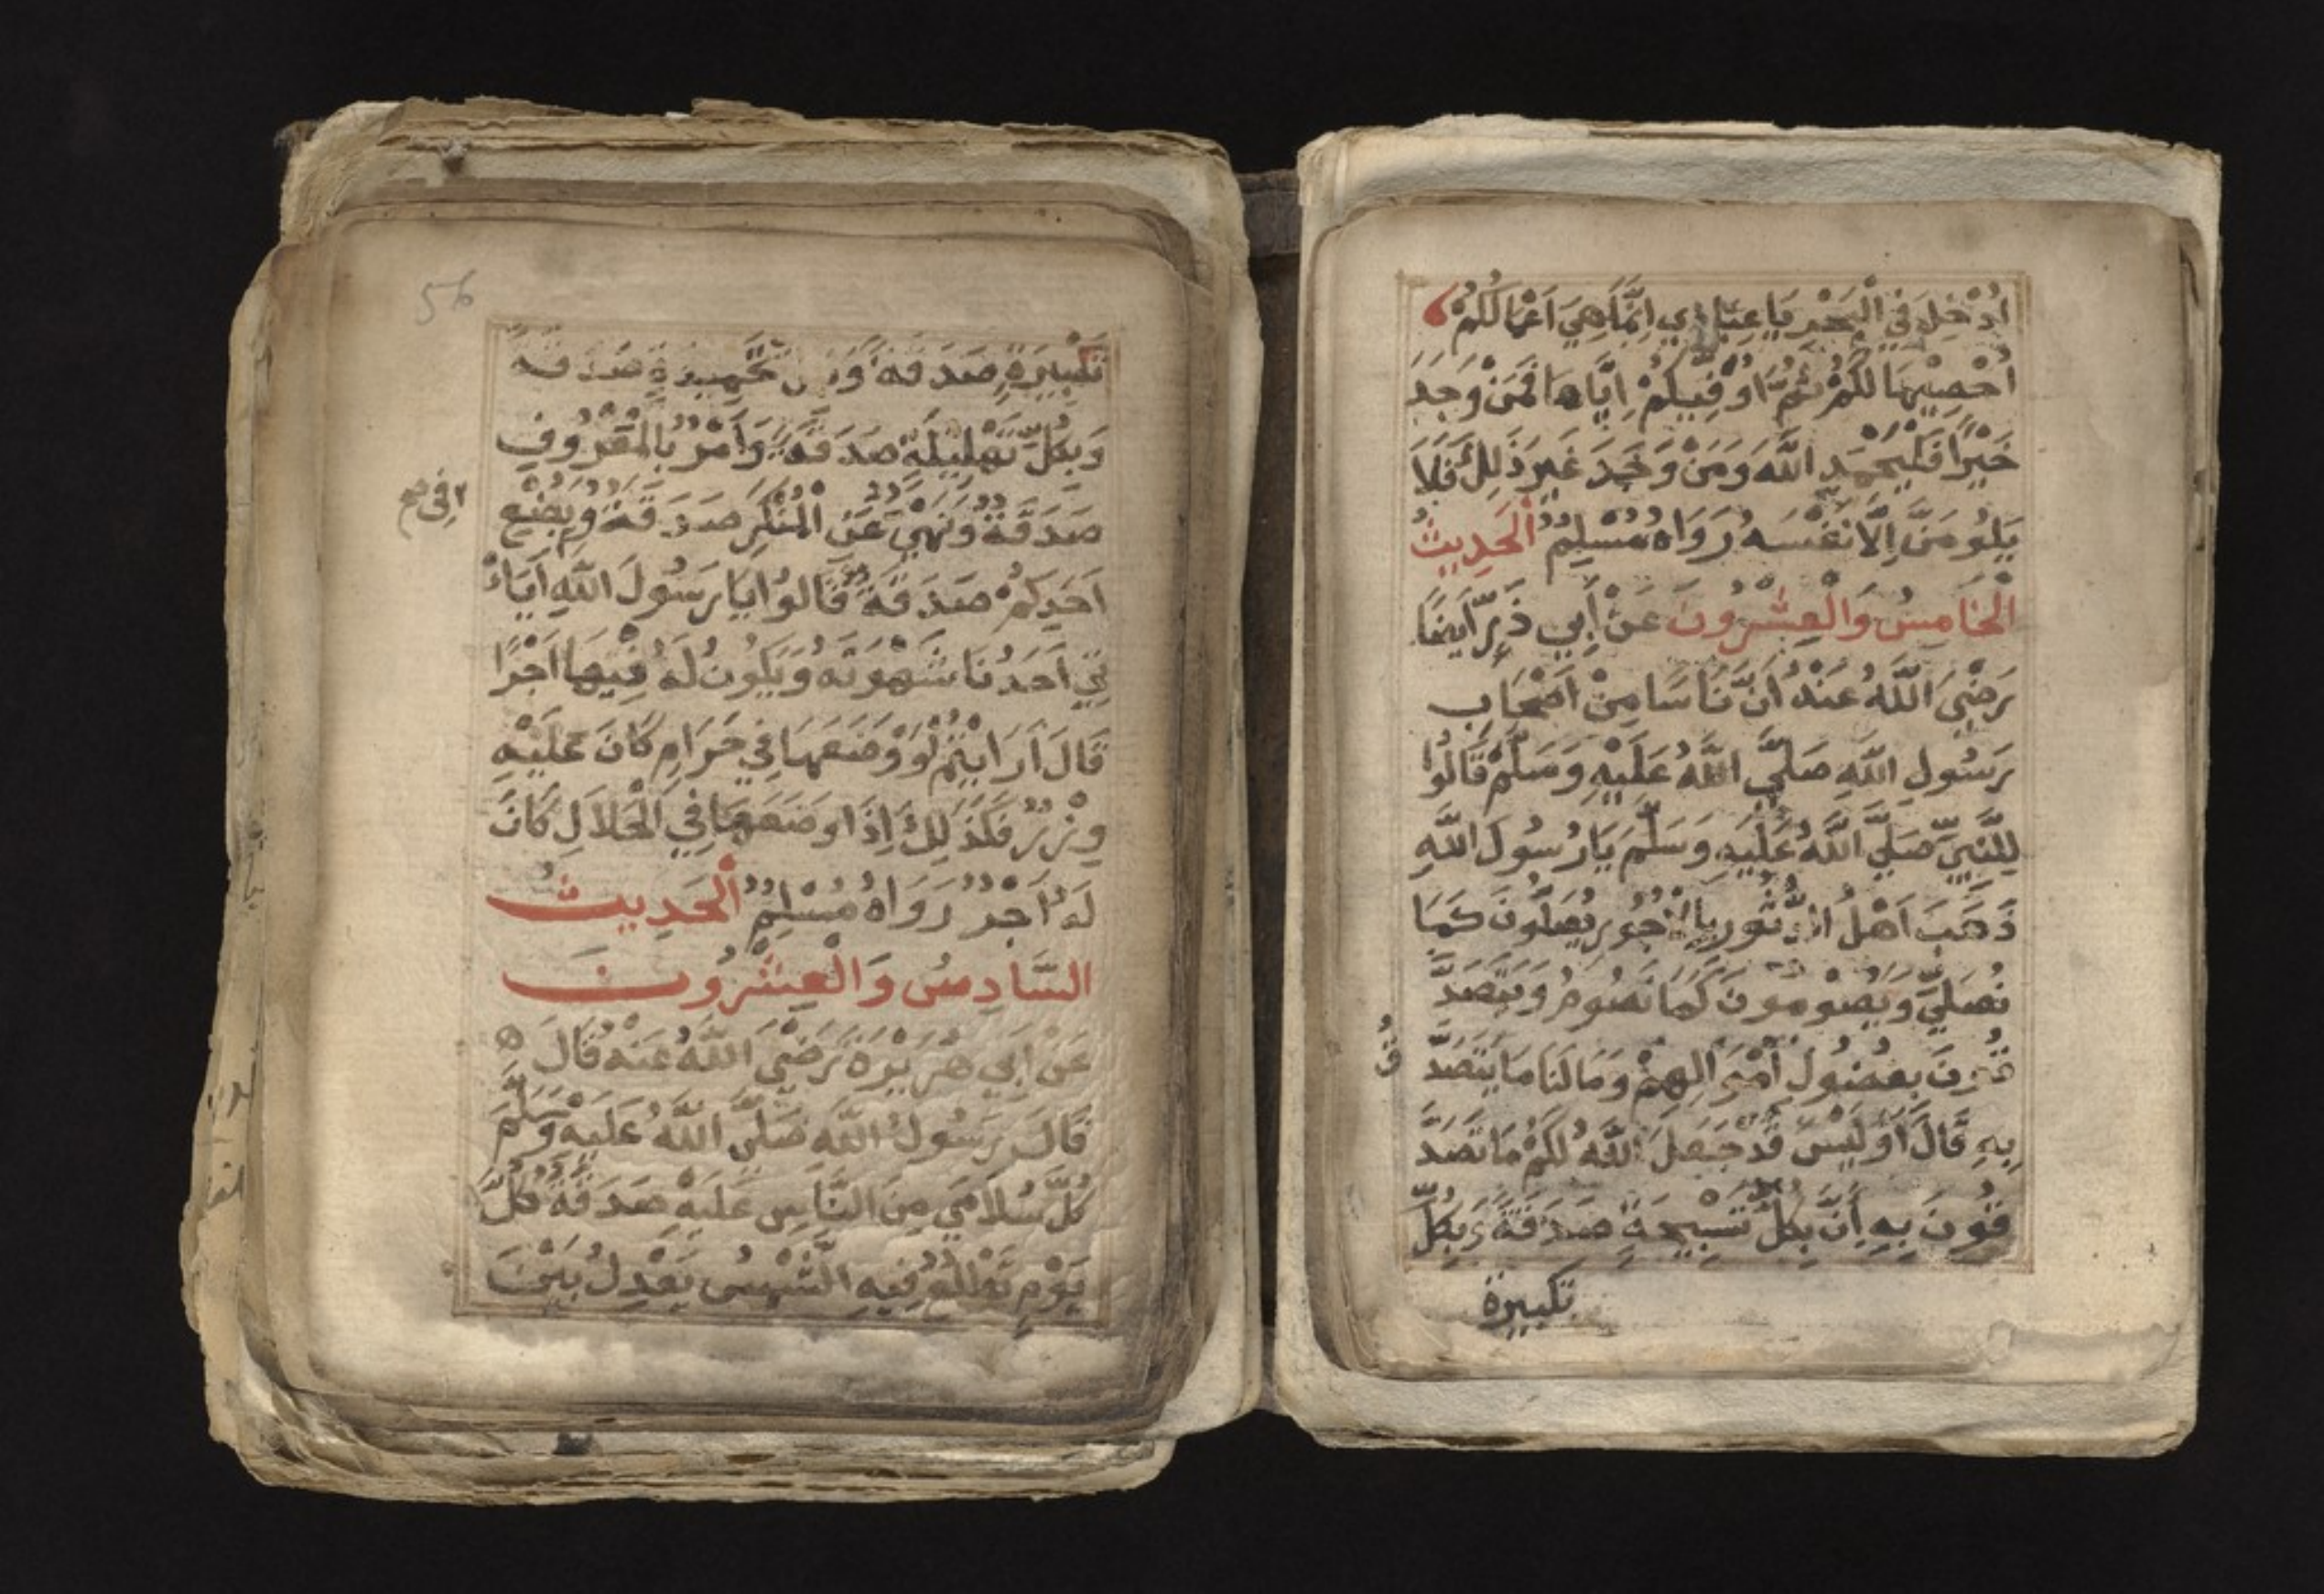 اُدْخِلَ فِي الْبَحْرِ يَا عِبَادِي اِنَّمَا هِيَ اَعْمَالُكُمْ
اُحْصِيْهَا لَكُمْ ثُمَّ اُوَفِّيكُمْ اِيَّاهَا فَمَنْ وَجَدَ
خَيْرًا فَلْيَحْمَدِ اللّٰهَ وَمَنْ وَجَدَ غَيْرَ ذَلِكَ فَلَا
يَلُومَنَّ اِلَّا نَفْسَهُ رَوَاهُ مُسْلِمٌ اَلْحَدِيثُ
الْخَامِسُ وَالْعِشْرُونَ عَنْ أَبِي ذَرٍّ اَيْضًا
رَضِيَ اللّٰهُ عَنْهُ اَنَّ نَاسًا مِنْ اَصْحَابِ
رَسُولِ اللّٰهِ صَلَّي اللّٰهُ عَلَيْهِ وَسَلَّمْ قَالُوا
لِلنَّبِيِّ صَلَّي اللّٰهُ عَلَيْهِ وَسَلَّمَ يَا رَسُولَ اللّٰهِ
ذَهَبَ اَهْلُ الدُّثُورِ بِالْاُجُورِ يُصَلُّونَ كَمَا
نُصَلِّي وَيَصُومُونَ كَمَا نَصُومُ وَيَتَصَدَّ
قُونَ بِفُضُولِ اَمْوَالِهِمْ وَمَا لَنَا مَا نَتَصَدَّ
قُ
بِهِ قَالَ اَوَلَيْسَ قَدْ جَعَلَ اللّٰهُ لَكُمْ مَا تَصَدَّ
قُونَ بِهِ اَنَّ بِكُلِّ تَسْبِيحَةٍ صَدَقَةً وَبِكُلِّ
تكبيرة
56
تَكْبِيرَةٍ صَدَقَةٌ وَبِكُلِّ تَحْمِيدَةٍ صَدَقَة
وَبِكُلِّ تَهْلِيلَةٍ صَدَقَةٌ وَاَمْرٌ بِالْمَعْرُوفِ
صَدَقَةٌ وَنَهْيٌ عَنْ الْمُنْكَرِ صَدَقَةٌ وَبِضْعِ
اَحَدِكُمْ صَدَقَةٌ قَالُوا يَا رَسُولَ اللّٰهِ اَيَاْ
تِي اَحَدُنَا شَهْوَتَهُ وَيَكُونُ لَهُ فِيْهَا اَجْرًا
قَالَ اَرَاَيْتُمْ لَوْ وَضَعَهَا فِي حَرَامٍ كَانَ عَلَيْهِ
وِزْرٌ فَكَذَلِكَ اِذَا وَضَعَهَا فِي الْحَلَالِ كَانَ
لَهُ اَجْرٌ رَوَاهُ مُسْلِمٌ اَلْحَدِيثُ
السَّادِسُ وَالْعِشْرُونَ
عَنْ اَبِي هُرَيْرَةَ رَضِيَ اللّٰهُ عَنْهُ قَالَ
قَالَ رَسُولُ اللّٰهِ صَلَّي اللّٰهُ عَلَيْهِ وَسَلَّمَ
كُلُّ سُلَامَي مِنَ النَّاسِ عَلَيْهِ صَدَقَةٌ كُلَّ
يَوْمٍ تَطْلُعُ فِيهِ الشَّمْسُ يَعْدِلُ بَيْنَ